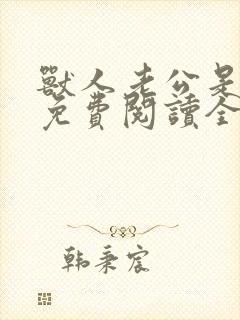 獸人老公是
免費閱讀全
韩秉宸